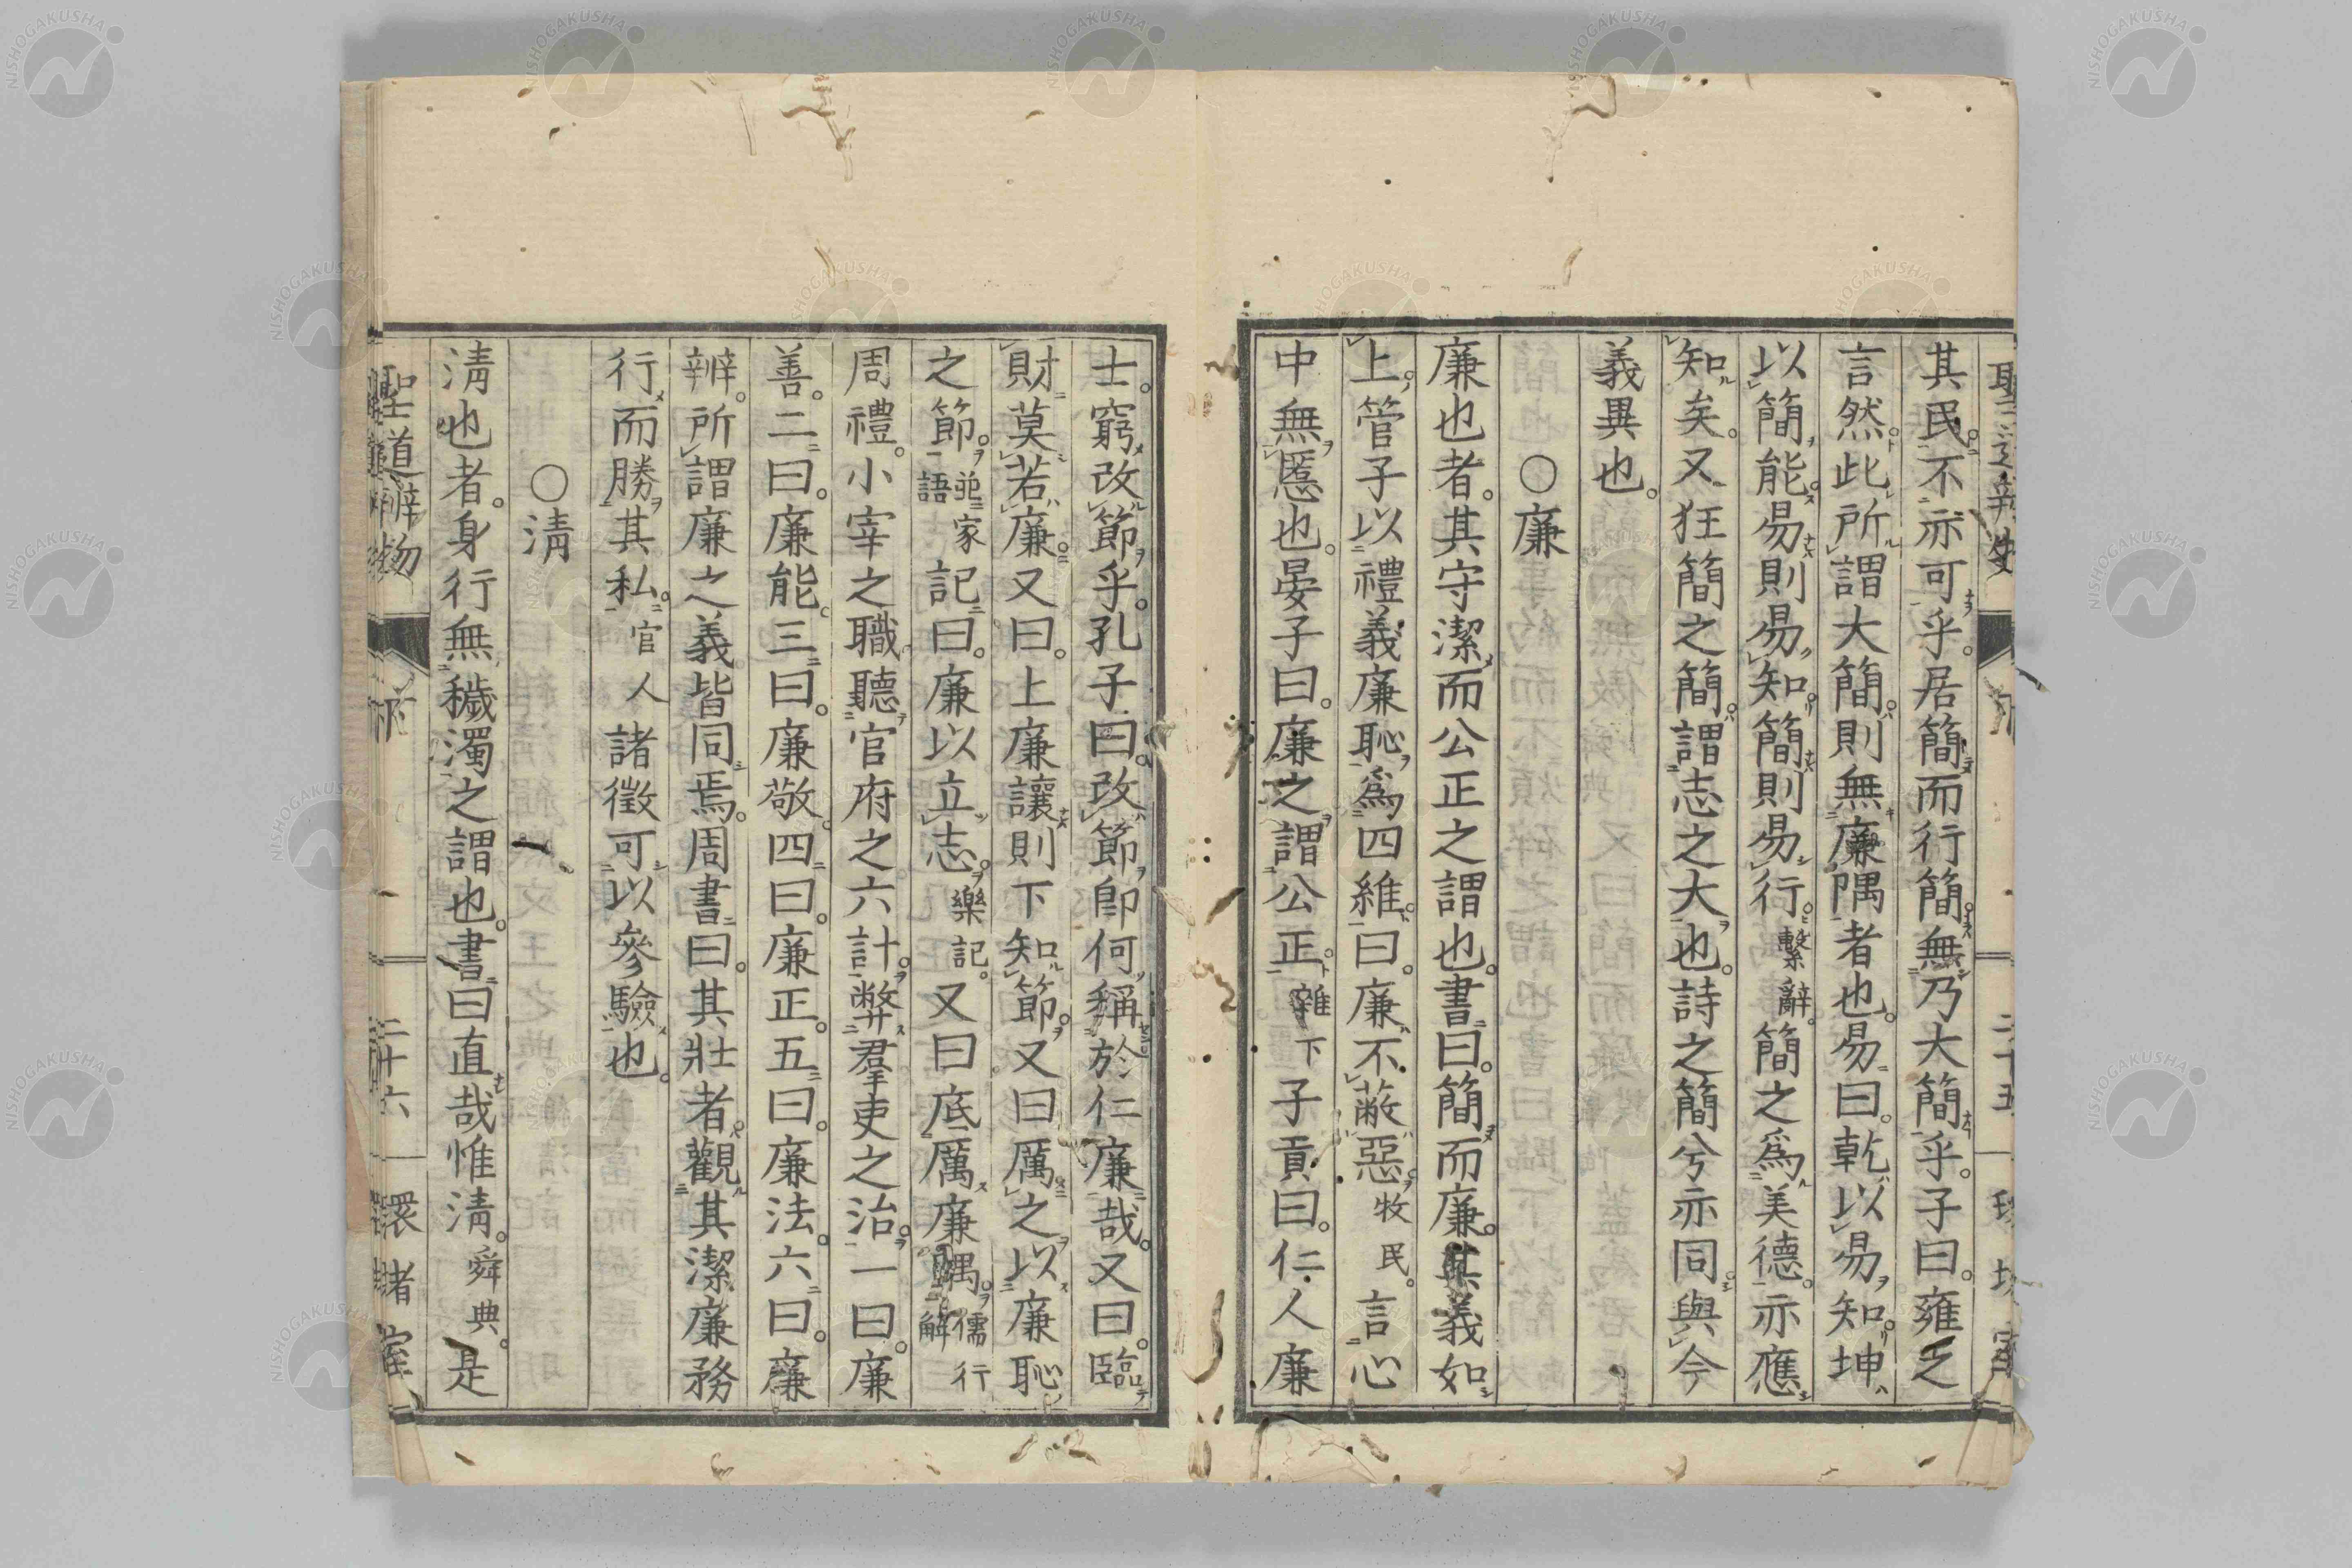 其民。不亦可乎。居簡而行簡。無乃大簡乎。子曰。雍之
言然。此所謂大簡。則無廉隅者也。易曰。乾以易知。坤
以簡能。易則易知。簡則易行。繫辭。簡之爲美德。亦應
知矣。又狂簡之簡。謂志之大也。詩之簡兮亦同。與今
義異也。
○廉
廉也者。其守潔而公正之謂也。書曰。簡而廉。其義如
上。管子以禮義廉恥爲四維。曰。廉不蔽惡。牧民。言心
中無慝也。晏子曰。廉之謂公正。雜下子貢曰。仁人廉
士。窮改節乎。孔子曰。改節卽何稱於仁廉哉。又曰。臨
財莫若廉。又曰。上廉讓則下知節。又曰厲之以廉恥
之節。並家語記曰。廉以立志。樂記。又曰底厲廉隅。儒行解
周禮。小宰之職聽官府之六計。弊羣吏之治。一曰。廉
善。二曰。廉能。三曰。廉敬。四曰。廉正。五曰。廉法。六曰。廉
辨。所謂廉之義皆同焉。周書曰。其壯者。觀其潔廉務
行而勝其私。官人諸徵可以參驗也。
○淸
淸也者。身行無穢濁之謂也。書曰直哉惟淸。舜典。是
聖道辨物
二十六
環堵室
NISHOGAKUSHA